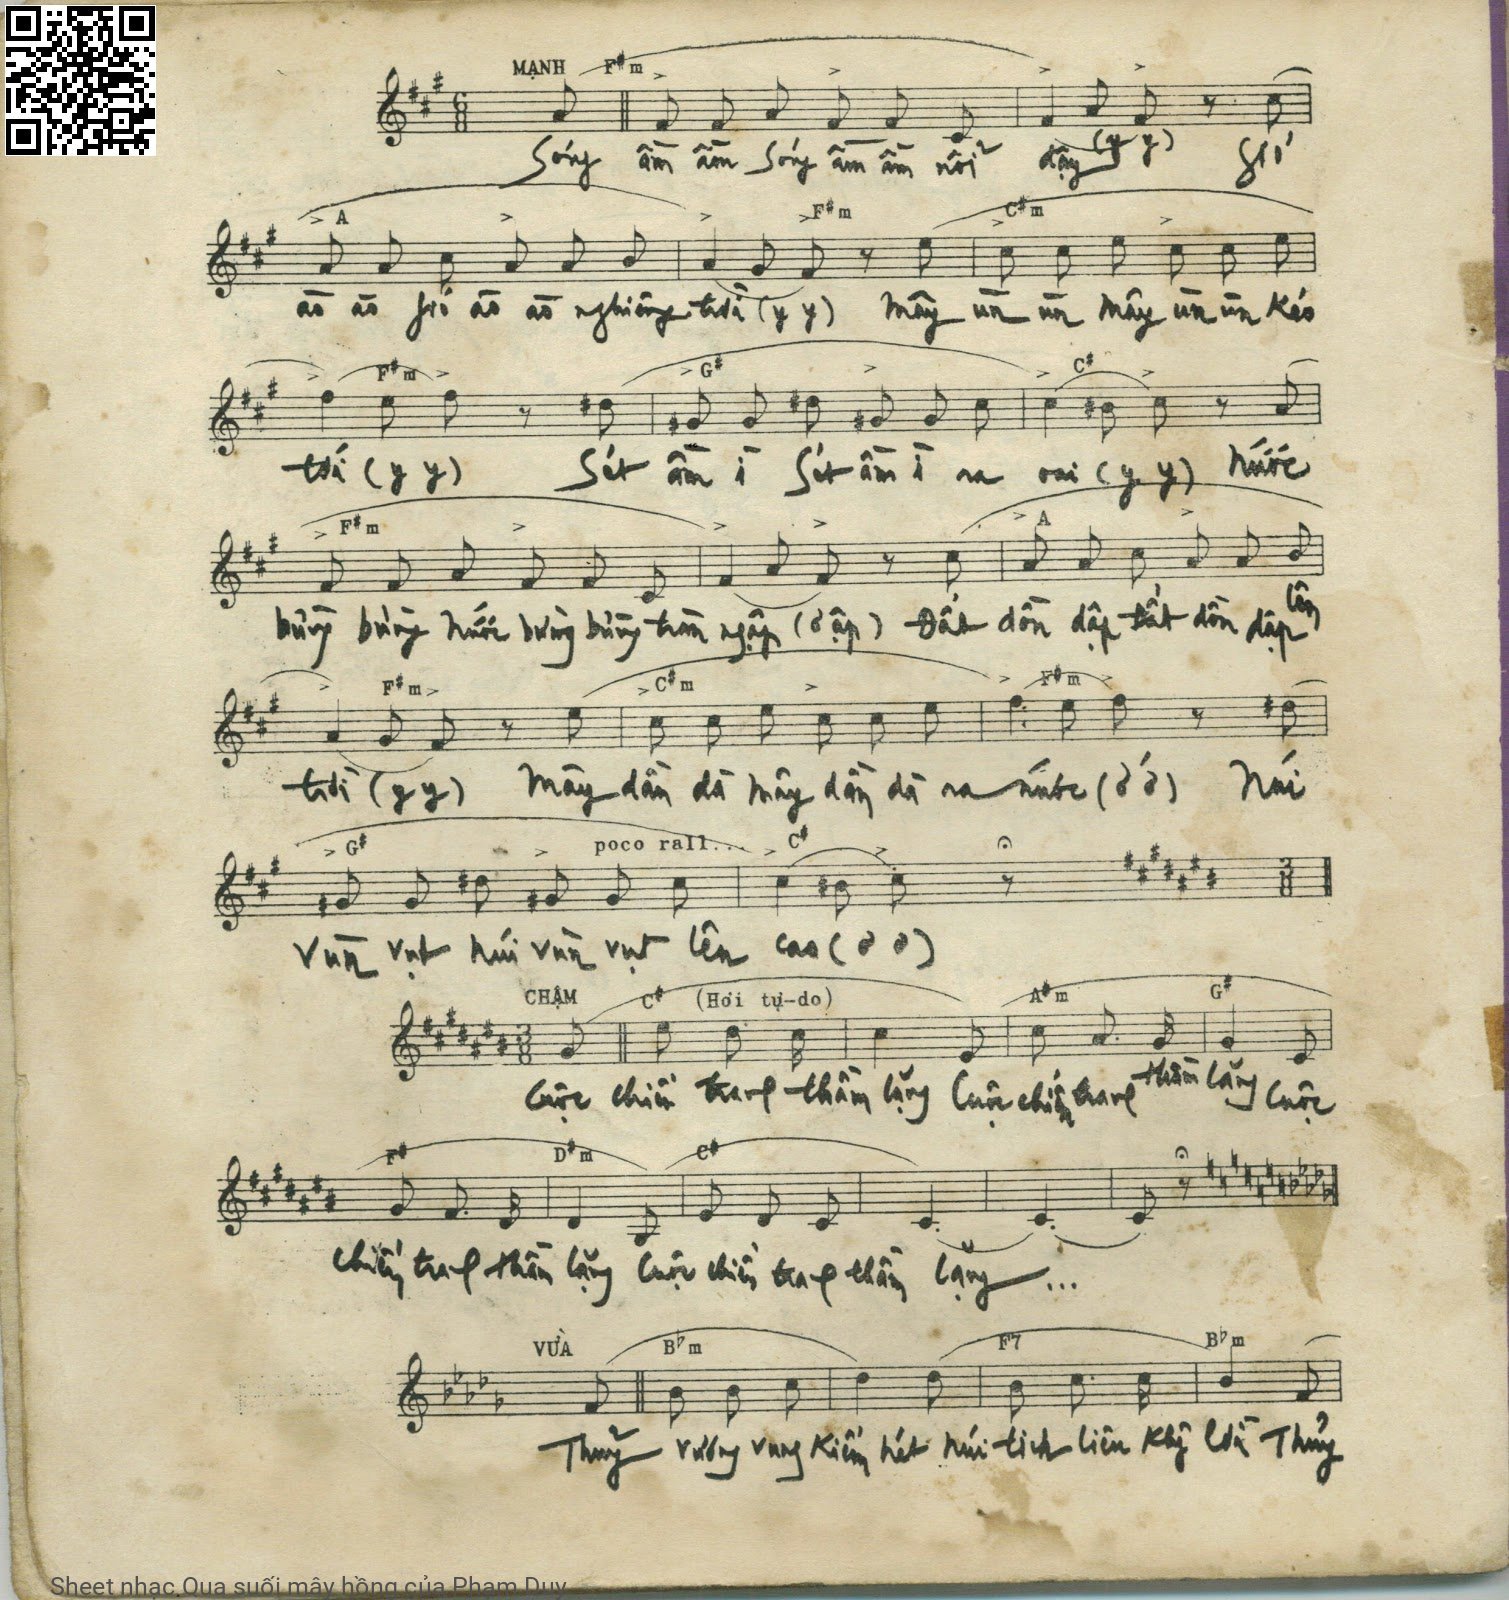 MẠNH F#m
Sóng ầm ầm Sóng ầm ầm nổi dậy (y y) Gió
A F#m C#m
ào ào gió ào ào nghiêng trời (y y) Mây ùn ùn Mây ùn ùn Kéo
F#m G# C#
tới (y y) Sét ầm ì Sét ầm ì ra oai (y y) Nước
F#m A
bừng bừng Nước bừng bừng tràn ngập (ờ ập) Đất dồn dập Đất dồn dập lên
F#m C#m F#m
trời (y y) Mây dần dà Mây dần dà ra nước (ớ ớ) Núi
G# poco rall... C#
Vùn vụt Núi vùn vụt lên cao (ơ ơ)
CHẬM C# (Hơi tự-do) A#m G#
Cuộc chiến tranh thầm lặng Cuộc chiến tranh thầm lặng Cuộc
F# D#m C#
chiến tranh thầm lặng Cuộc chiến tranh thầm lặng ...
VỪA B♭m F7 B♭m
Thủy Vương vung Kiếm hét Núi tích liên Khi Thủy
Sheet nhạc Qua suối mây hồng của Phạm Duy